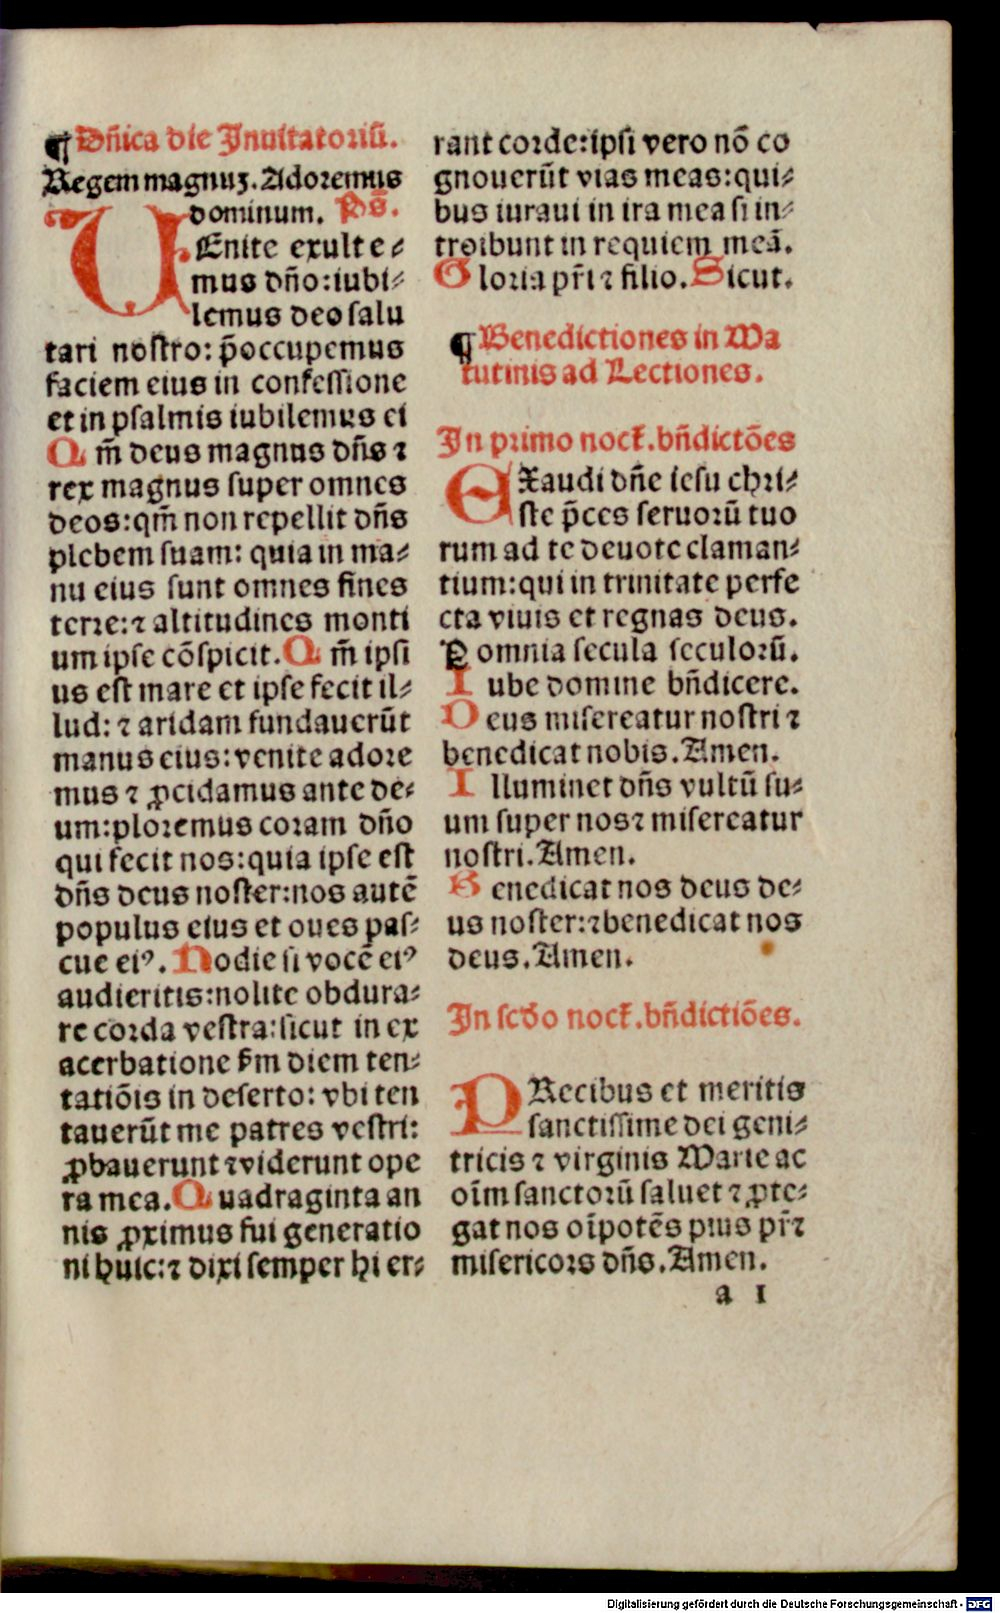 ¶ Dñica die Inuitatoriū.
Regem magnuʒ. Adoremus
dominum. Ps̄.
VEnite exulte⸗
mus dño: iubi⸗
lemus deo salu
tari nostro: p̄occupemus
faciem eius in confessione
et in psalmis iubilemus ei
Qm̄ deus magnus dñs ⁊
rex magnus super omnes
deos: qm̄ non repellit dñs
plebem suam: quia in ma⸗
nu eius sunt omnes fines
terre: ⁊ altitudines monti
um ipse cōspicit. Qm̄ ipsi
us est mare et ipse fecit il⸗
lud: ⁊ aridam fundauerūt
manus eius: venite adore
mus ⁊ ꝓcidamus ante de⸗
um: ploremus coram dño
qui fecit nos: quia ipse est
dñs deus noster: nos autē
populus eius et oues pas⸗
cue eiꝰ. Hodie si vocē eiꝰ
audieritis: nolite obdura⸗
re corda vestra: sicut in ex
acerbatione ẜm diem ten⸗
tatiōis in deserto: vbi ten
tauerūt me patres vestri:
ꝓbauerunt ⁊ viderunt ope
ra mea. Quadraginta an
nis ꝓximus fui generatio
ni huic: ⁊ dixi semper hi er⸗
rant corde: ipsi vero nō co
gnouerūt vias meas: qui⸗
bus iuraui in ira mea si in⸗
troibunt in requiem meā.
Gloria pr̄i ⁊ filio. Sicut.
¶ Benedictiones in Ma
tutinis ad Lectiones.
In primo noct̄. bñdictōes
EXaudi dñe iesu chri⸗
ste p̄ces seruorū tuo
rum ad te deuote claman⸗
tium: qui in trinitate perfe
cta viuis et regnas deus.
Ꝑ omnia secula seculorū.
Iube domine bñdicere.
Deus misereatur nostri ⁊
benedicat nobis. Amen.
Illuminet dñs vultū su⸗
um super nos ⁊ misereatur
nostri. Amen.
Benedicat nos deus de⸗
us noster: ⁊ benedicat nos
deus. Amen.
In scd̄o noct̄. bñdictiōes.
PRecibus et meritis
sanctissime dei geni⸗
tricis ⁊ virginis Marie ac
oīm sanctorū saluet ⁊ ꝓte⸗
gat nos oīpotēs pius pr̄ ⁊
misericors dñs. Amen.
a 1
Digitalisierung gefördert durch die Deutsche Forschungsgemeinschaft - DFG